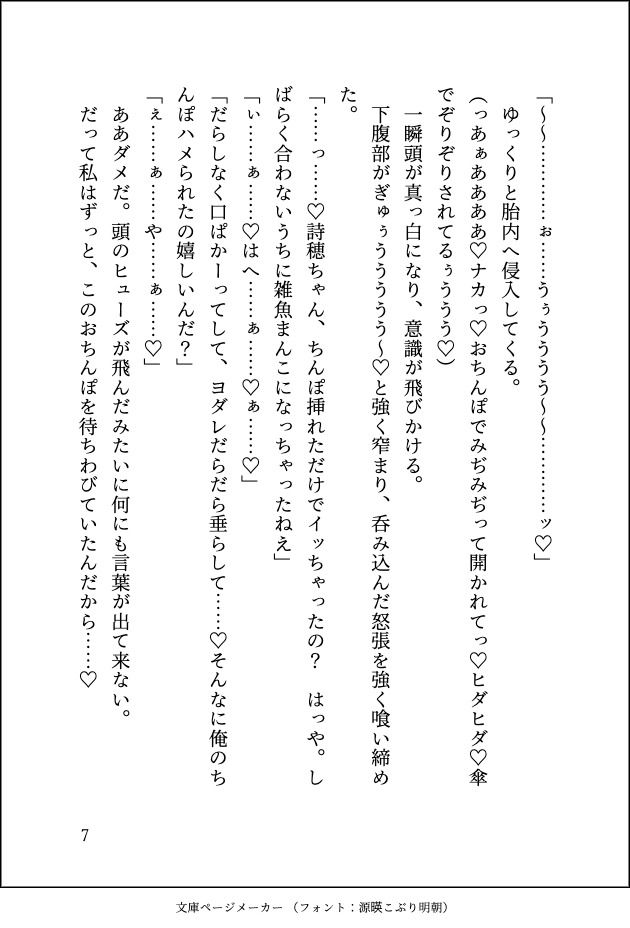 「～～…………ぉ……うぅううう～～…………ッ♡」
　ゆっくりと胎内へ侵入してくる。
（っあぁあああ♡ナカっ♡おちんぽでみぢみぢって開かれてっ♡ヒダヒダ♡傘
でぞりぞりされてるぅうう♡）
　一瞬頭が真っ白になり、意識が飛びかける。
　下腹部がぎゅぅうううう～♡と強く窄まり、呑み込んだ怒張を強く喰い締め
た。
「……っ……♡詩穂ちゃん、ちんぽ挿れただけでイッちゃったの？　はっや。し
ばらく合わないうちに雑魚まんこになっちゃったねえ」
「ぃ……ぁ……♡はへ……ぁ……♡ぁ……♡」
「だらしなく口ぱかーってして、ヨダレだらだら垂らして……♡そんなに俺のち
んぽハメられたの嬉しいんだ？」
「ぇ……ぁ……や……ぁ……♡」
　ああダメだ。頭のヒューズが飛んだみたいに何にも言葉が出て来ない。
　だって私はずっと、このおちんぽを待ちわびていたんだから……♡
7
文庫ページメーカー（フォント：源暎こぶり明朝）